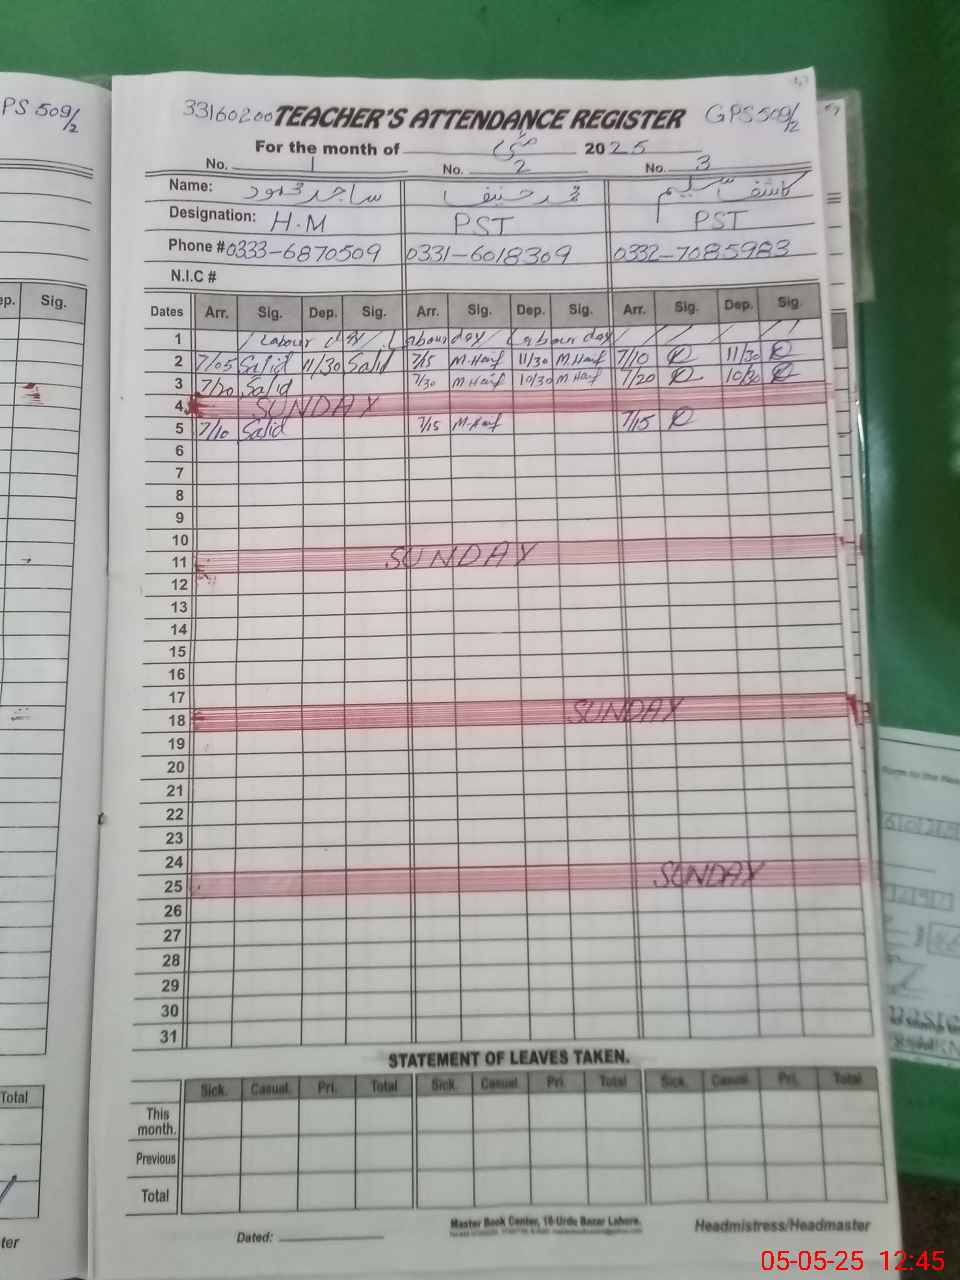 PS 509/2
33160200 TEACHER'S ATTENDANCE REGISTER GPS 509/2
For the month of مئی 2025
No. 1 No. 2 No. 3
Name: ساجد محمود محمد حنیف کاشف سلیم
Designation: H.M PST PST
Phone # 0333-6870509 0331-6018309 0332-7085983
N.I.C #
ep. Sig.
Dates Arr. Sig. Dep. Sig. Arr. Sig. Dep. Sig. Arr. Sig. Dep. Sig.
1 Labour day Labour day Labour day
2 7/05 Sajid 11/30 Sajid 7/15 M.Hanif 11/30 M.Hanif 7/10 11/30
3 7/20 Sajid 7/30 M.Hanif 10/30 M.Hanif 7/20 10/30
4 SUNDAY
5 7/10 Sajid 7/15 M.Hanif 7/15
6
7
8
9
10
11 SUNDAY
12
13
14
15
16
17
18 SUNDAY
19
20
21
22
23
24
25 SUNDAY
26
27
28
29
30
31
STATEMENT OF LEAVES TAKEN.
Total
Sick. Casual. Pri. Total Sick. Casual. Pri. Total Sick. Casual. Pri. Total
This month.
Previous
Total
Master Book Center, 18-Urdu Bazar Lahore.
Dated: Headmistress/Headmaster
ter
05-05-25 12:45